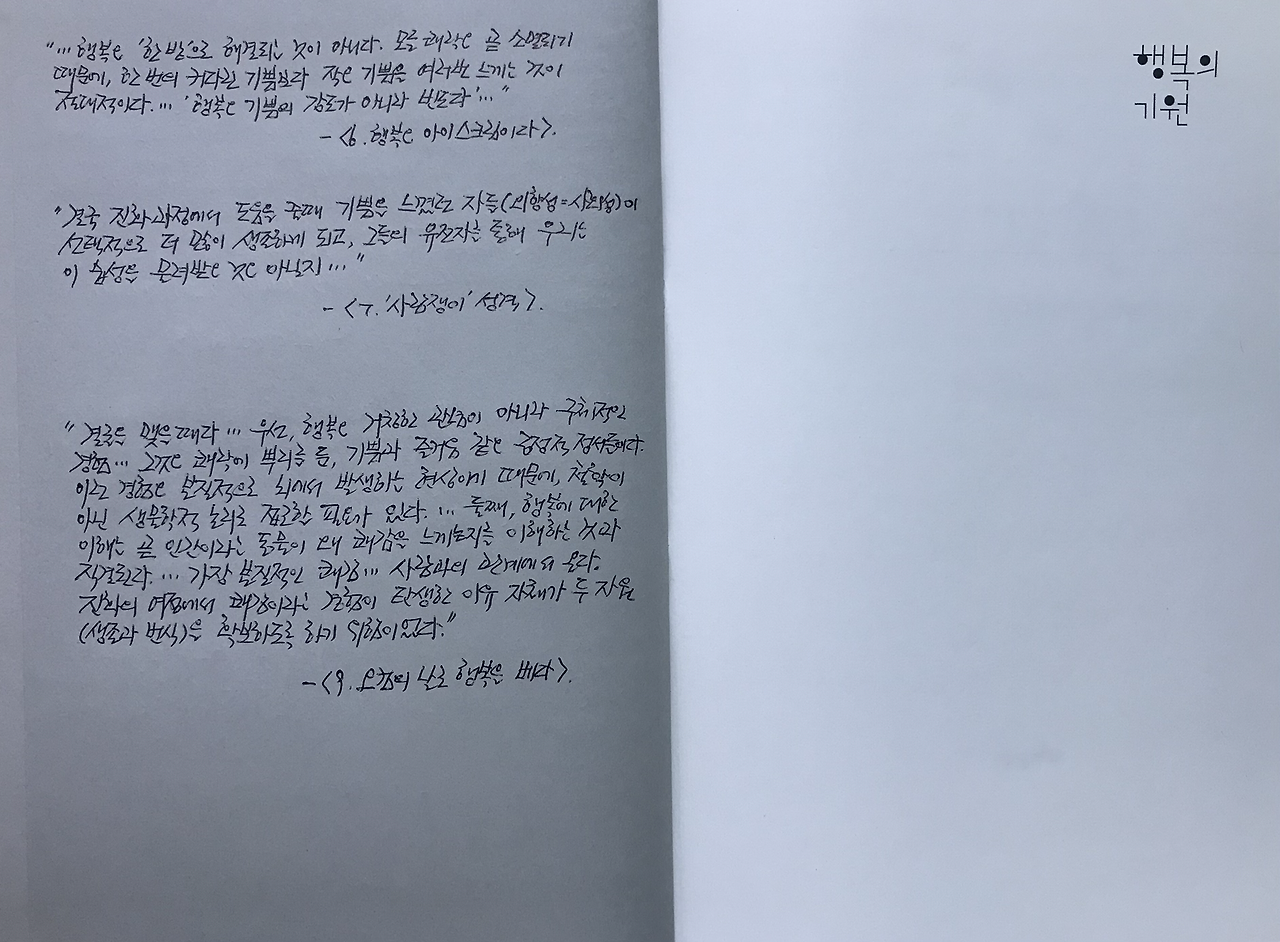 "… 행복은 '한 방'으로 해결되는 것이 아니다. 모든 쾌락은 곧 소멸되기
때문에, 한 번의 커다란 기쁨보다 작은 기쁨을 여러번 느끼는 것이
절대적이다. … '행복은 기쁨의 강도가 아니라 빈도다'…"
- <6. 행복은 아이스크림이다>.
"결국 진화과정에서 도움을 줄때 기쁨을 느꼈던 자들(외향성=사회성)이
선택적으로 더 많이 생존하게 되고, 그들의 유전자를 통해 우리는
이 습성을 물려받은 것은 아닐지…"
- <7. '사람쟁이' 성격>.
"결론을 맺을때다 … 우선, 행복은 거창한 관념이 아니라 구체적인
경험… 그것은 쾌락에 뿌리를 둔, 기쁨과 즐거움 같은 긍정적 정서들이다.
이런 경험은 본질적으로 뇌에서 발생하는 현상이기 때문에, 철학이
아닌 생물학적 논리로 접근할 필요가 있다. … 둘째, 행복에 대한
이해는 곧 인간이라는 동물이 왜 쾌감을 느끼는지를 이해하는 것과
직결된다. … 가장 본질적인 쾌감… 사람과의 관계에서 온다.
진화의 여정에서 쾌감이라는 경험이 탄생한 이유 자체가 두 자원
(생존과 번식)을 확보하도록 하기 위함이었다."
- <9. 오컴의 날로 행복을 베다>.
행복의
기원